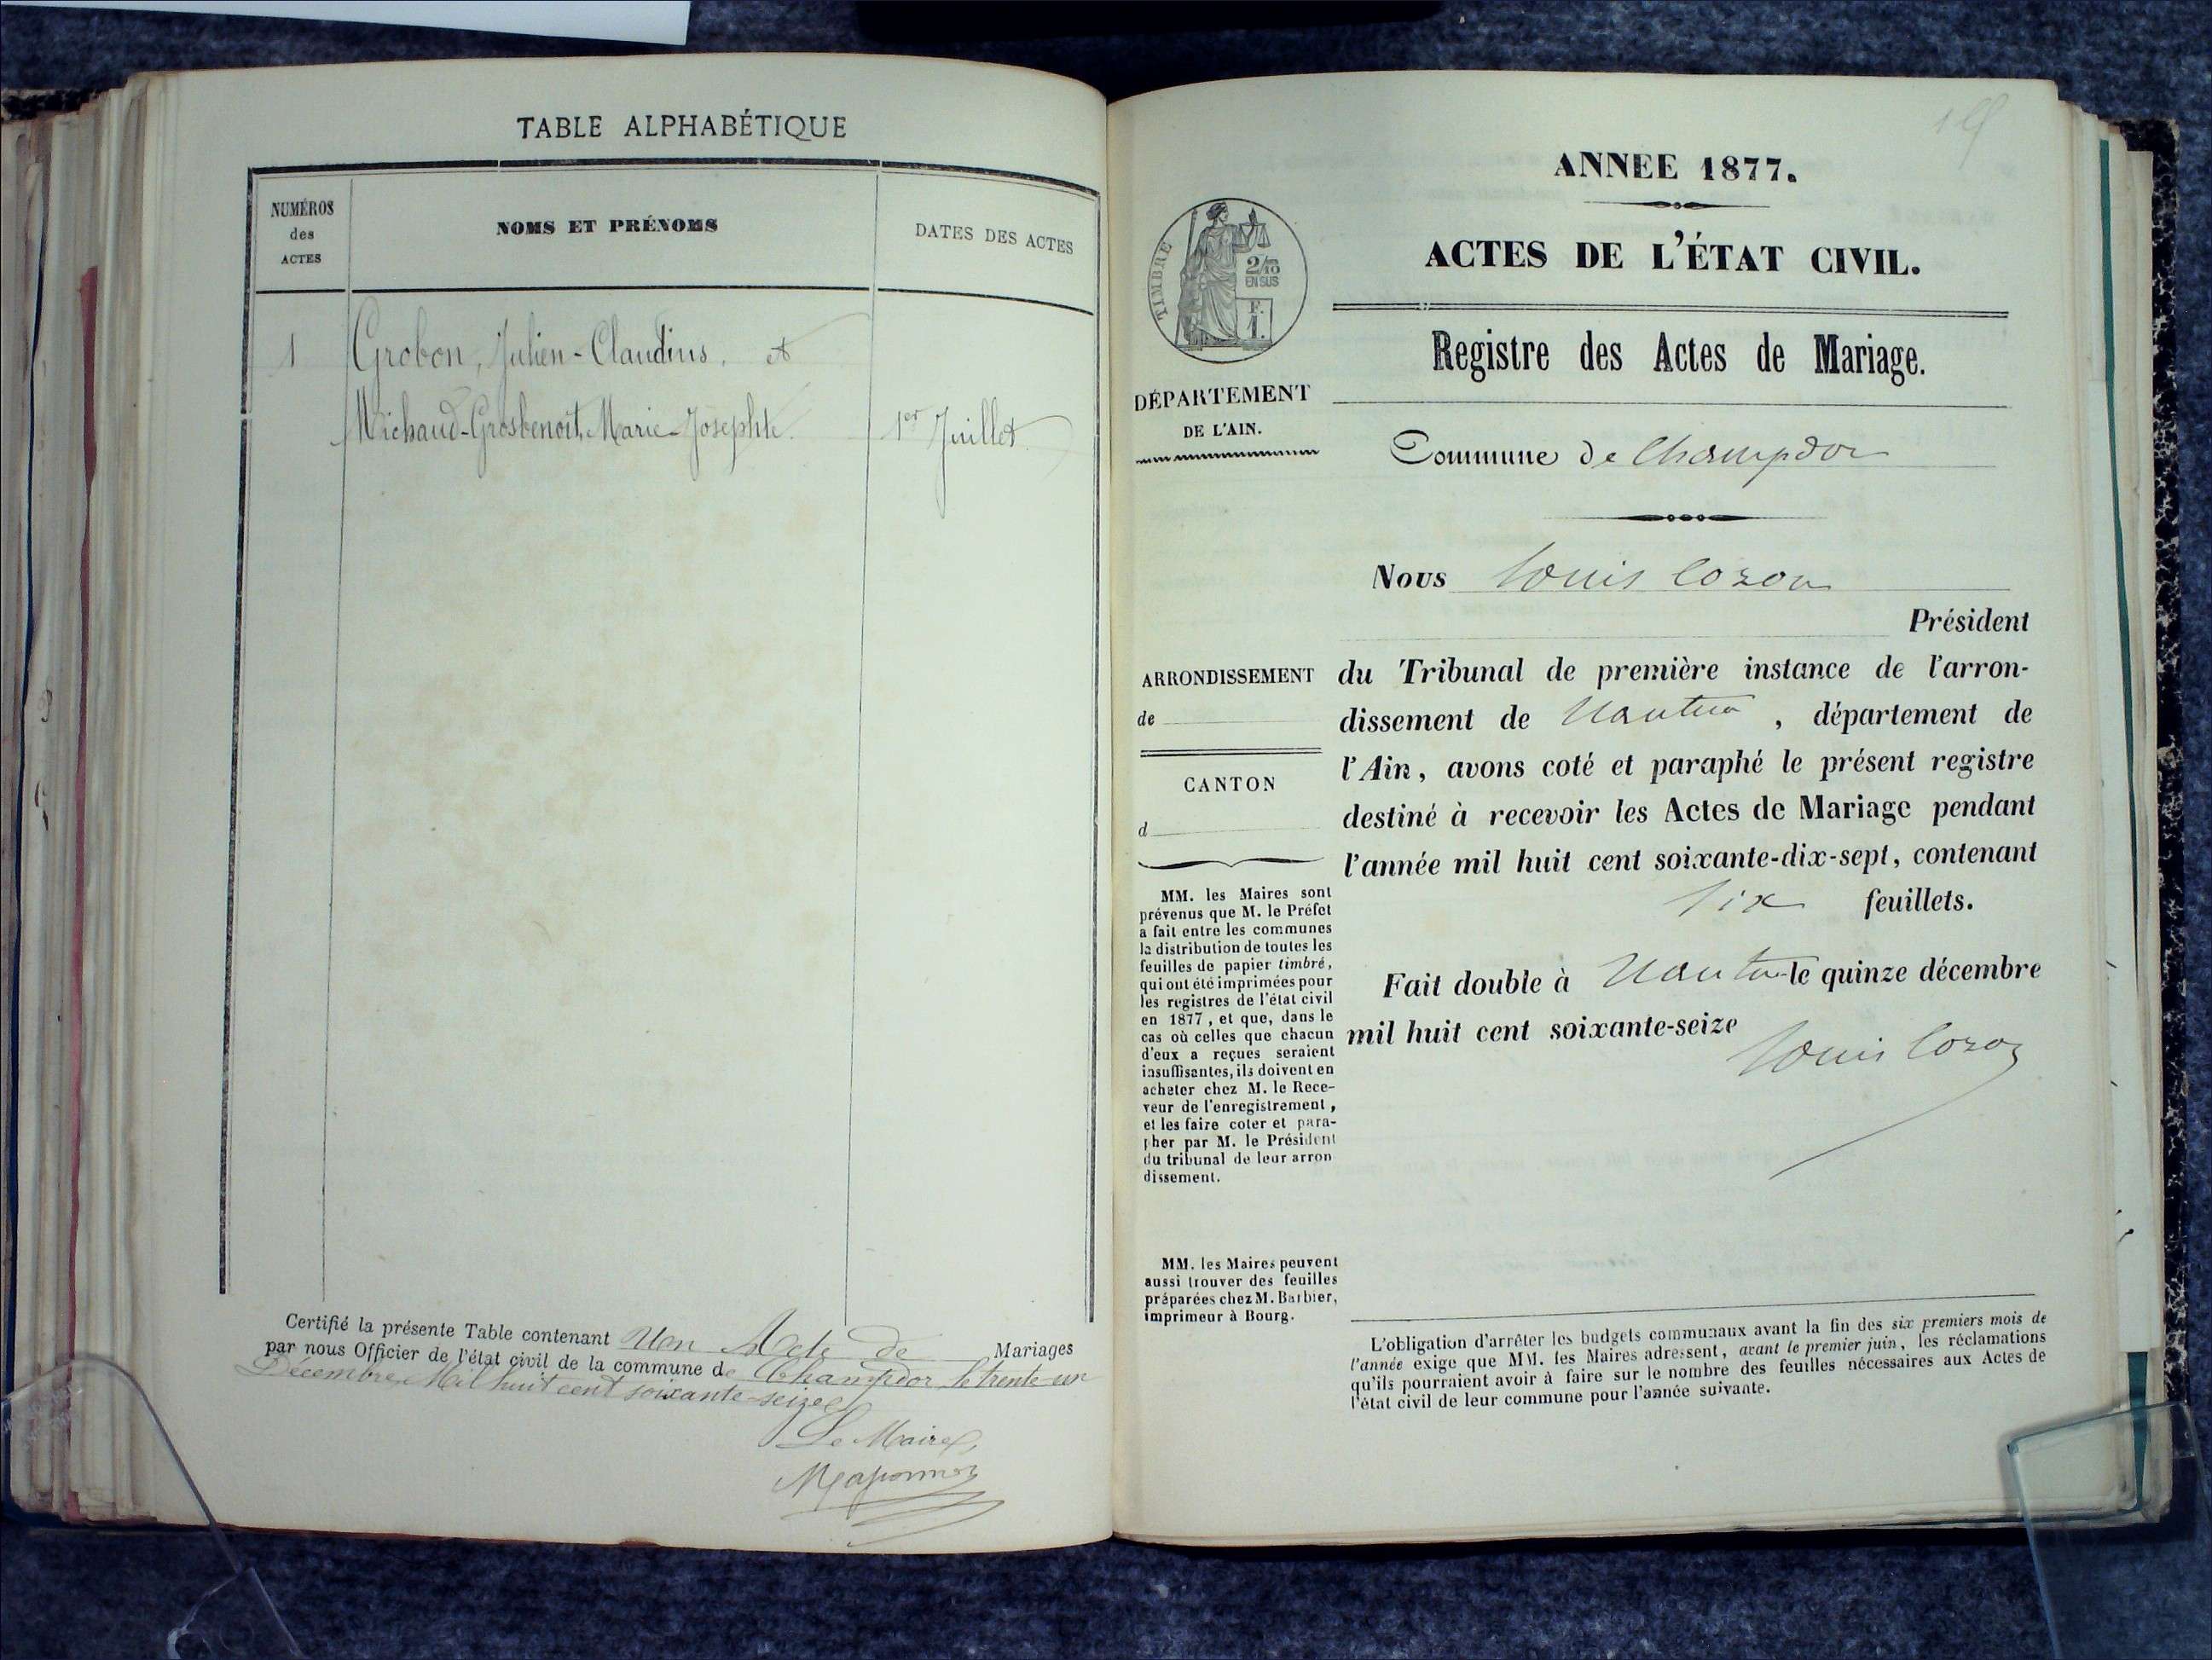 TABLE ALPHABÉTIQUE
NUMÉROS
des
ACTES
NOMS ET PRÉNOMS
DATES DES ACTES
1
Grobon, Julien-Claudius, et
Michaud-Grosbenoit, Marie-Josephte.
1er Juillet
Certifié la présente Table contenant Un Acte de Mariages
par nous Officier de l'état civil de la commune de Champdor le trente-un
Décembre Mil huit cent soixante-seize
Le Maire,
ANNEE 1877.
ACTES DE L'ÉTAT CIVIL.
TIMBRE
2/10
EN SUS
F.
1.
Registre des Actes de Mariage.
DÉPARTEMENT
DE L'AIN.
Commune de Champdor
Nous Louis Cozon
Président
ARRONDISSEMENT
de
CANTON
d
du Tribunal de première instance de l'arron-
dissement de Nantua, département de
l'Ain, avons coté et paraphé le présent registre
destiné à recevoir les Actes de Mariage pendant
l'année mil huit cent soixante-dix-sept, contenant
six feuillets.
Fait double à Nantua le quinze décembre
mil huit cent soixante-seize
Louis Cozon
MM. les Maires sont
prévenus que M. le Préfet
a fait entre les communes
la distribution de toutes les
feuilles de papier timbré,
qui ont été imprimées pour
les registres de l'état civil
en 1877, et que, dans le
cas où celles que chacun
d'eux a reçues seraient
insuffisantes, ils doivent en
acheter chez M. le Rece-
veur de l'enregistrement,
et les faire coter et para-
pher par M. le Président
du tribunal de leur arron
dissement.
MM. les Maires peuvent
aussi trouver des feuilles
préparées chez M. Barbier,
imprimeur à Bourg.
L'obligation d'arrêter les budgets communaux avant la fin des six premiers mois de
l'année exige que MM. les Maires adressent, avant le premier juin, les réclamations
qu'ils pourraient avoir à faire sur le nombre des feuilles nécessaires aux Actes de
l'état civil de leur commune pour l'année suivante.